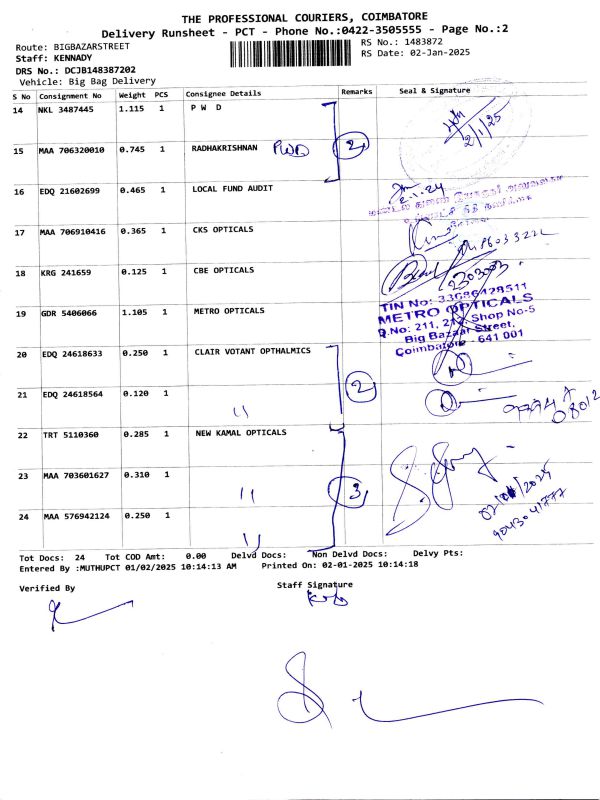 THE PROFESSIONAL COURIERS, COIMBATORE
Delivery Runsheet - PCT - Phone No.:0422-3505555 - Page No.:2
Route: BIGBAZARSTREET
RS No.: 1483872
Staff: KENNADY
RS Date: 02-Jan-2025
DRS No.: DCJB148387202
Vehicle: Big Bag Delivery
S No Consignment No Weight PCS Consignee Details Remarks Seal & Signature
14 NKL 3487445 1.115 1 P W D
2/1/25
15 MAA 706320010 0.745 1 RADHAKRISHNAN PWD 2
16 EDQ 21602699 0.465 1 LOCAL FUND AUDIT
2.1.24
17 MAA 706910416 0.365 1 CKS OPTICALS
18 KRG 241659 0.125 1 CBE OPTICALS
19 GDR 5406066 1.105 1 METRO OPTICALS
TIN No: 33686428511
METRO OPTICALS
D.No: 211, 212, Shop No-5
Big Bazaar Street,
Coimbatore - 641 001
20 EDQ 24618633 0.250 1 CLAIR VOTANT OPTHALMICS
2
21 EDQ 24618564 0.120 1 "
22 TRT 5110360 0.285 1 NEW KAMAL OPTICALS
23 MAA 703601627 0.310 1 " 3
02/01/2025
9043041777
24 MAA 576942124 0.250 1 "
Tot Docs: 24 Tot COD Amt: 0.00 Delvd Docs: Non Delvd Docs: Delvy Pts:
Entered By :MUTHUPCT 01/02/2025 10:14:13 AM Printed On: 02-01-2025 10:14:18
Verified By
Staff Signature